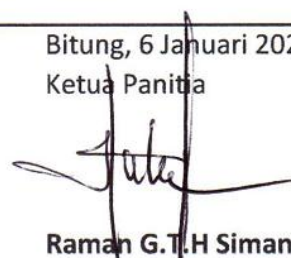 Bitung, 6 Januari 202
Ketua Panitia
Raman G.T.H Siman